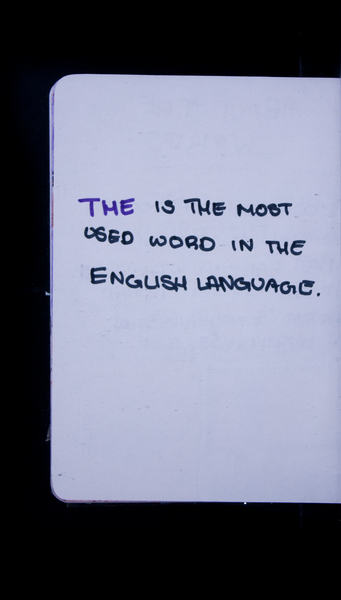 THE IS THE MOST
USED WORD IN THE
ENGLISH LANGUAGE.